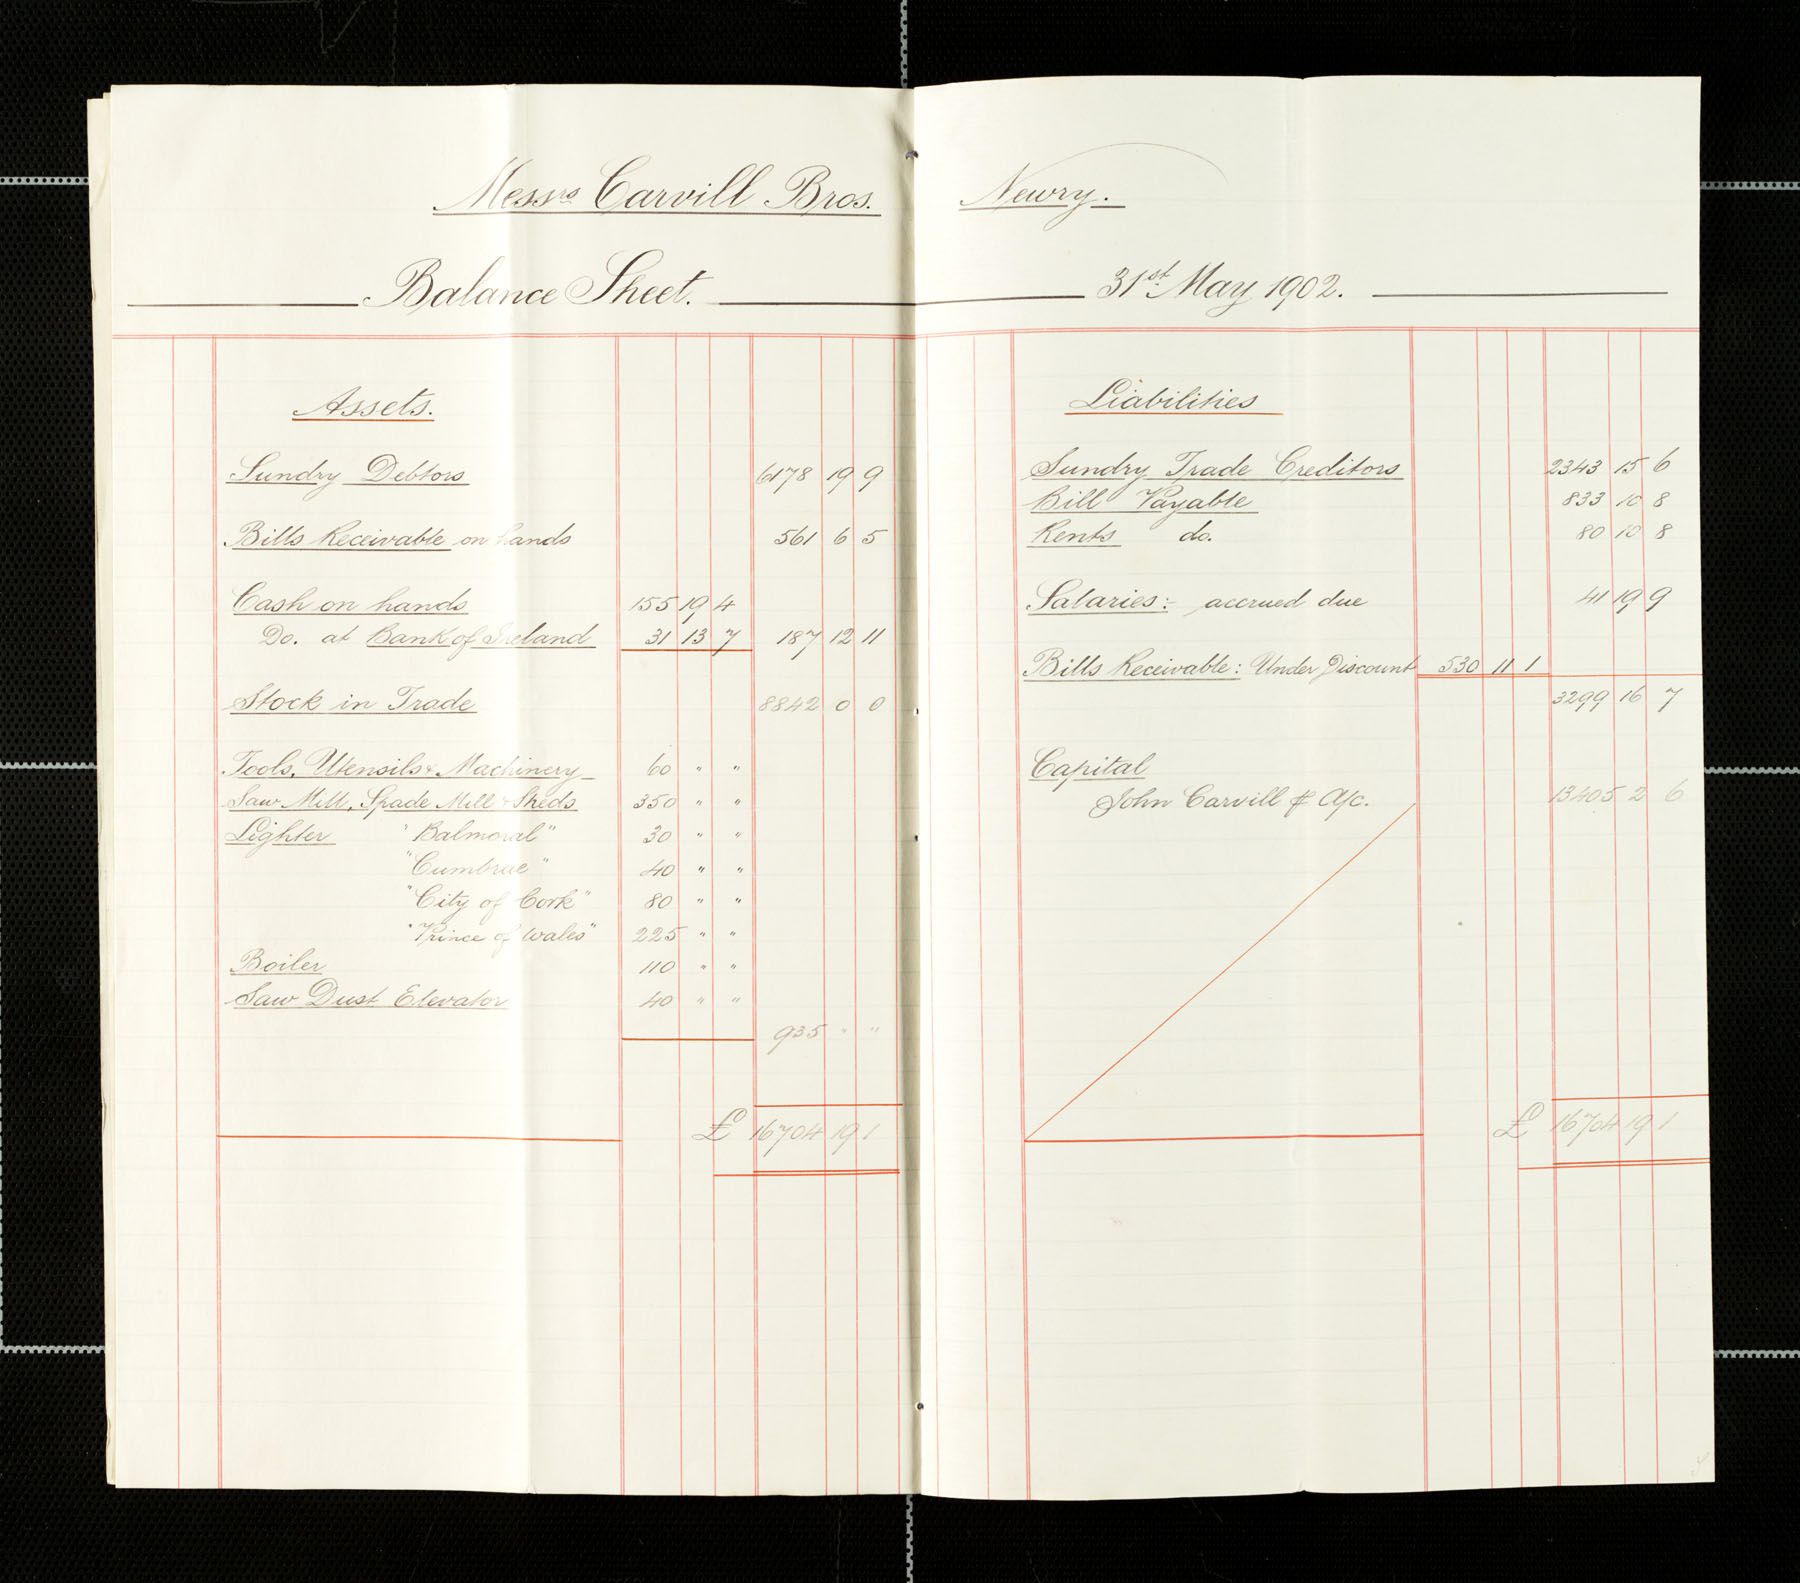 Messrs Carvill Bros. Newry.
Balance Sheet. 31st May 1902.
Assets.
Sundry Debtors 6178 19 9
Bills Receivable on hands 561 6 5
Cash on hands 155 19 4
Do. at Bank of Ireland 31 13 7 187 12 11
Stock in Trade 8842 0 0
Tools, Utensils & Machinery 60 " "
Saw Mill, Spade Mill & Sheds 350 " "
Lighter "Balmoral" 30 " "
"Cumbrae" 40 " "
"City of Cork" 80 " "
"Prince of Wales" 225 " "
Boiler 110 " "
Saw Dust Elevator 40 " "
935 " "
£ 16704 19 1
Liabilities
Sundry Trade Creditors 2343 15 6
Bill Payable 833 10 8
Rents do. 80 10 8
Salaries: accrued due 41 19 9
Bills Receivable: Under Discount 530 11 1
3299 16 7
Capital
John Carvill A/c. 13405 2 6
£ 16704 19 1